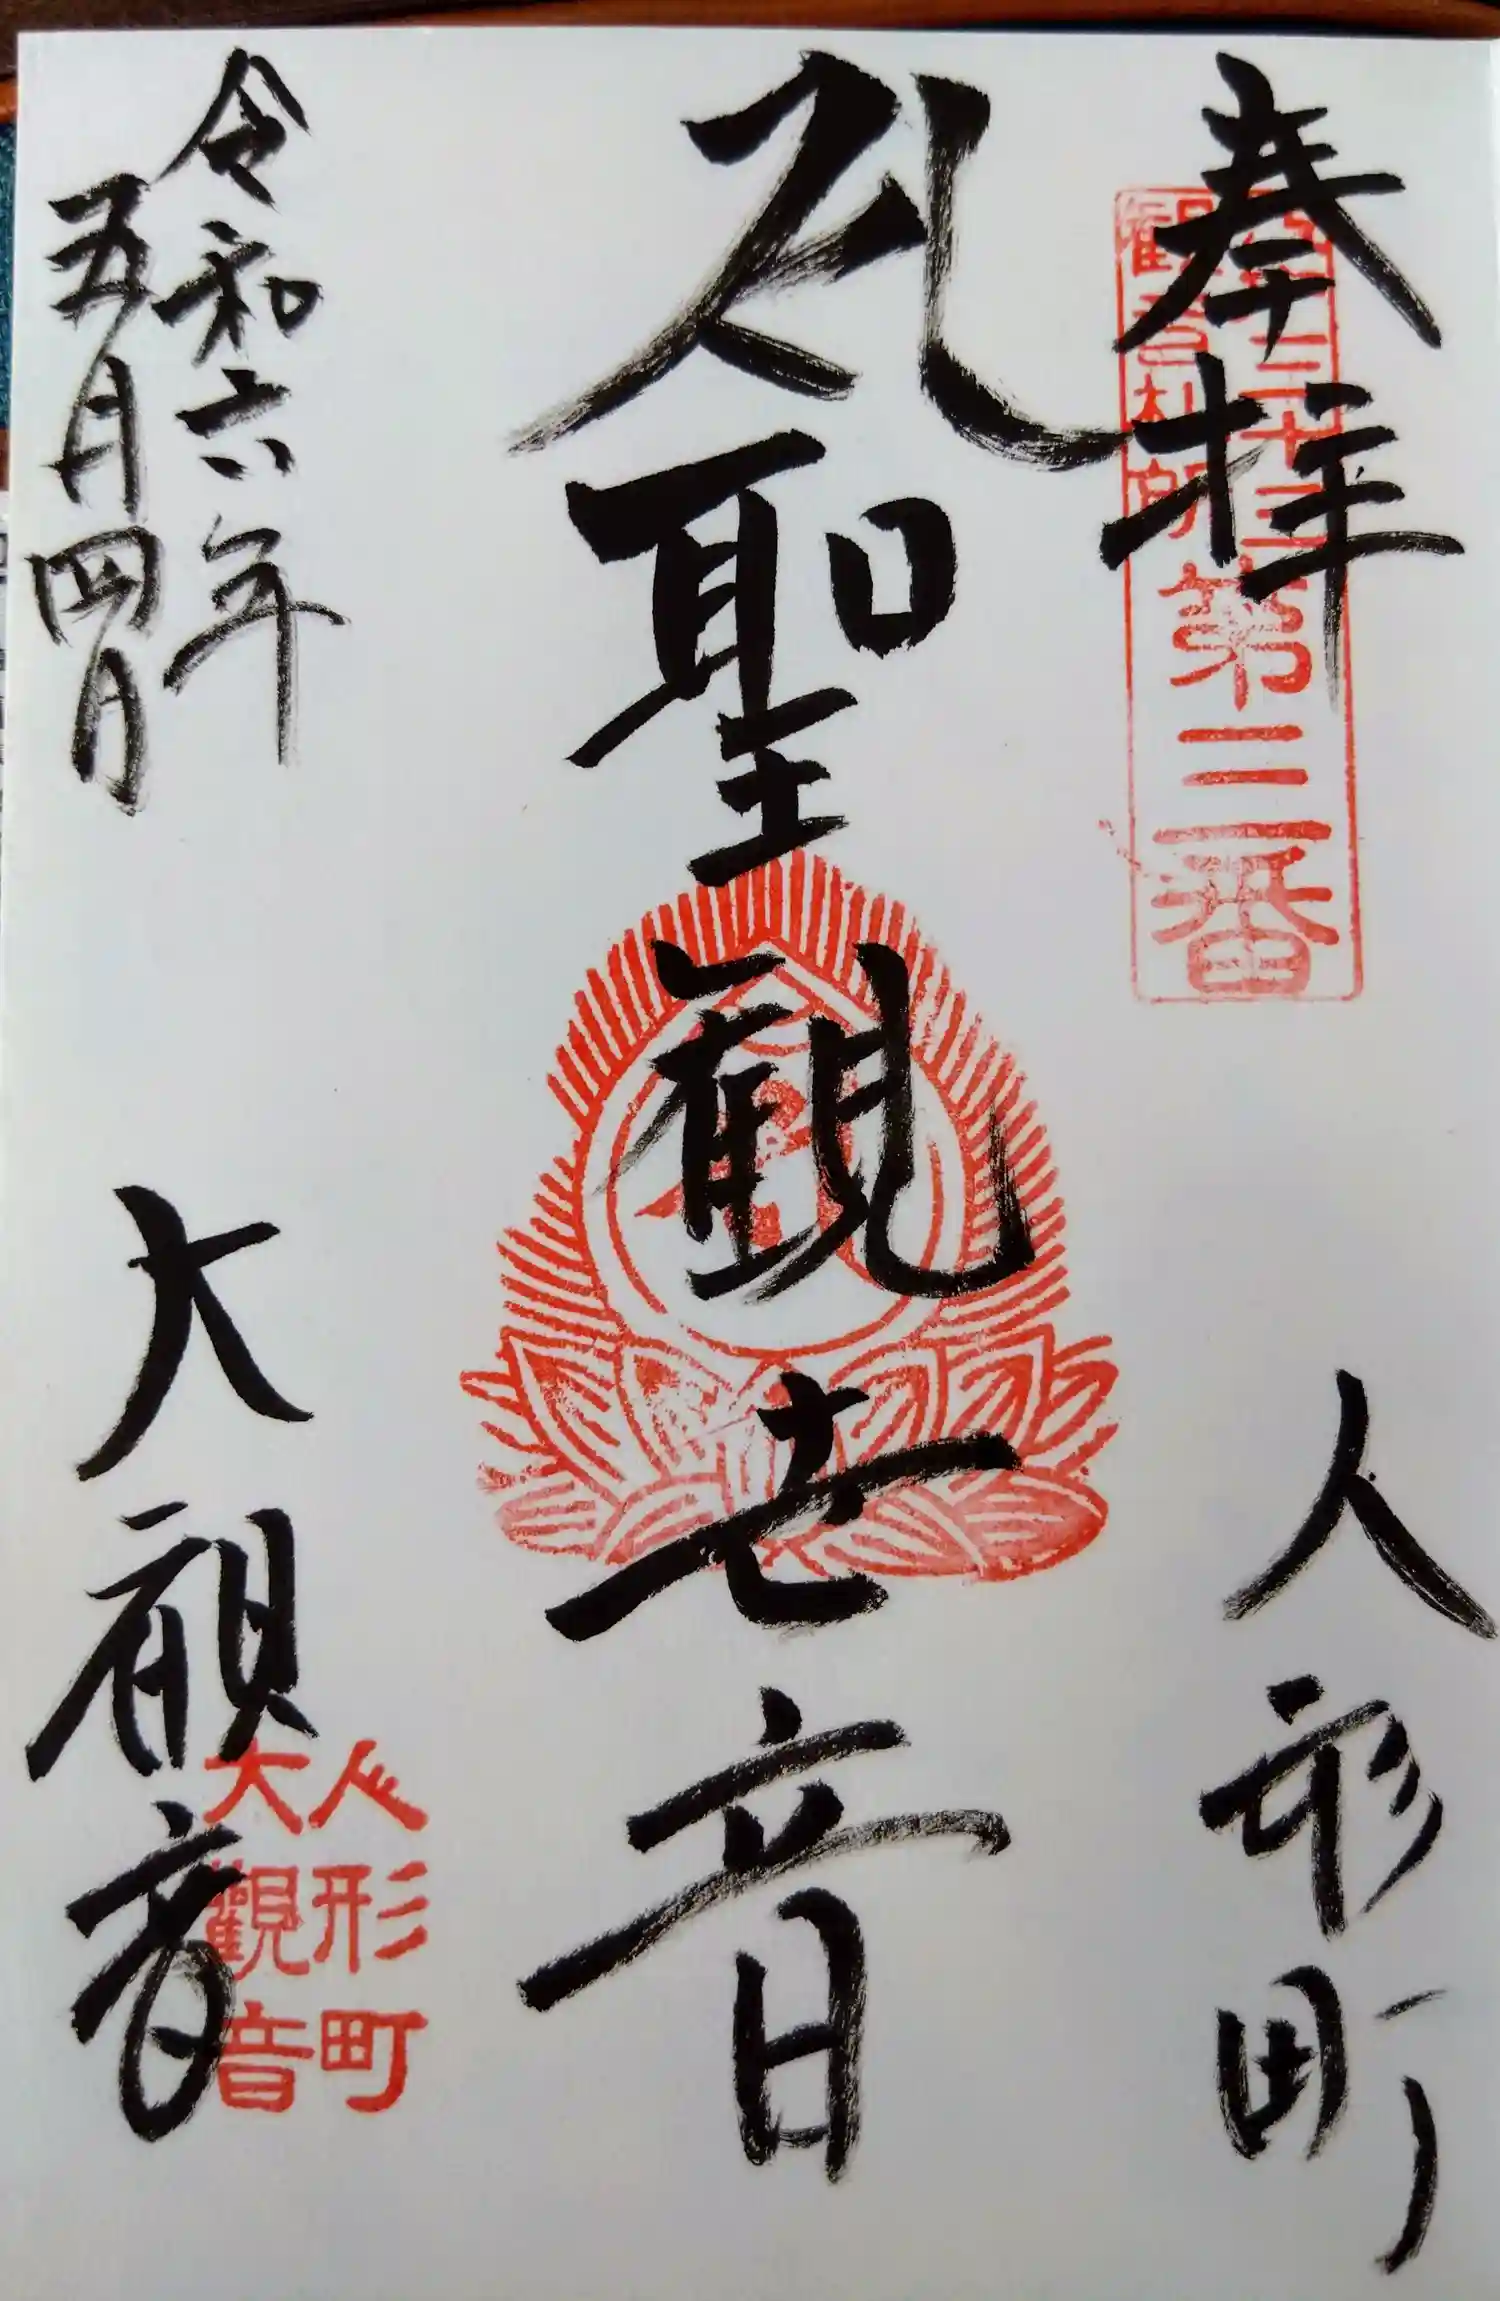 奉拝
江戸三十三
観音札所
第三番
人形町
聖観世音
令和六年
五月四日
大観音
人形町
大觀音